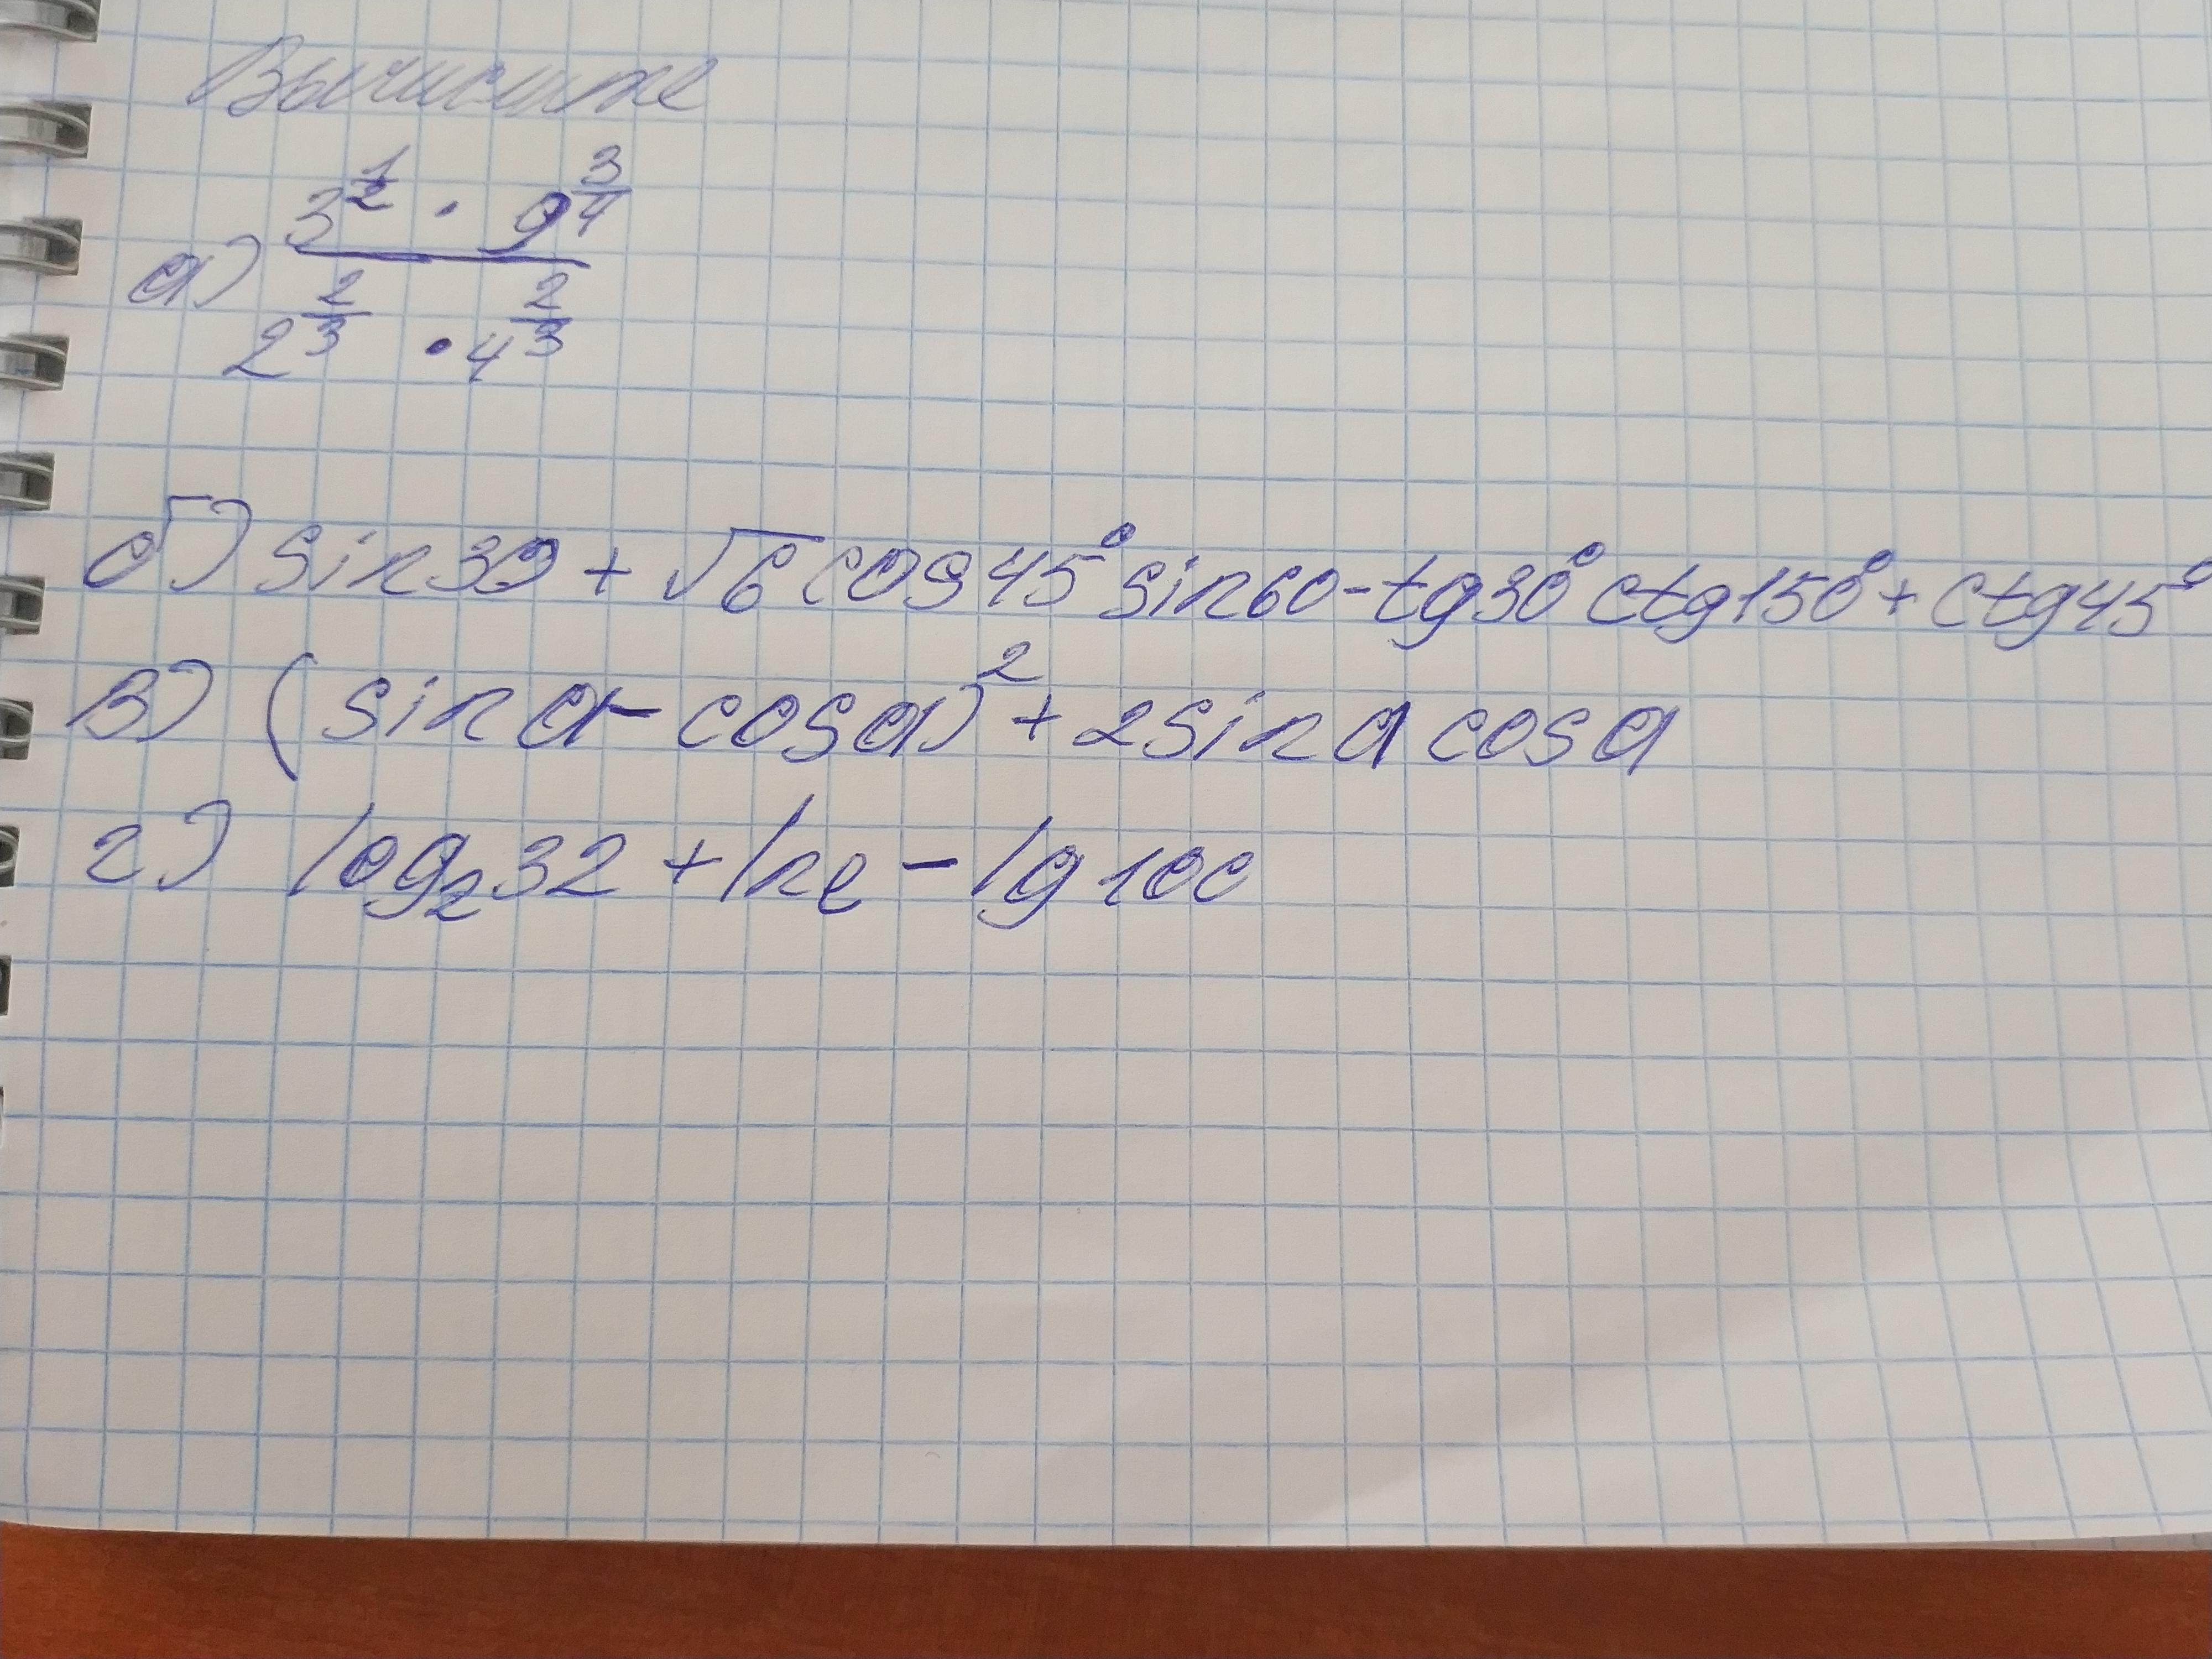 Вычислите
а) (3^(1/2) · 9^(3/4)) / (2^(2/3) · 4^(2/3))
б) sin30 + √6 cos45° sin60 - tg30° ctg150° + ctg45°
в) (sin a - cos a)² + 2sin a cos a
г) log₂32 + lne - lg 100